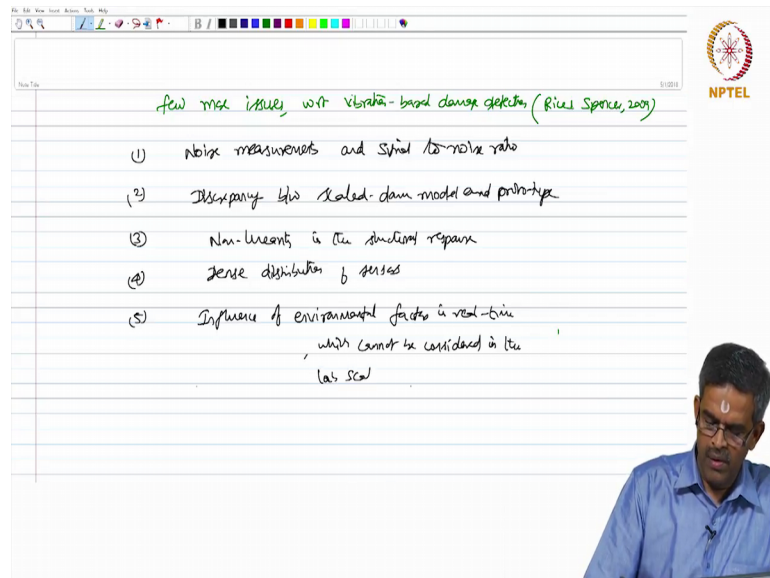 File Edit View Insert Actions Tools Help
B I
NPTEL
Note Title
5/1/2018
few more issues, wrt vibration-based damage detection (Rice & Spencer, 2009)
(1) Noise measurements and signal to noise ratio
(2) Discrepancy b/w scaled-down model and proto-type
(3) Non-linearity in the structural response
(4) Dense distribution of sensors
(5) Influence of environmental factors in real-time
, which cannot be considered in the
lab scale